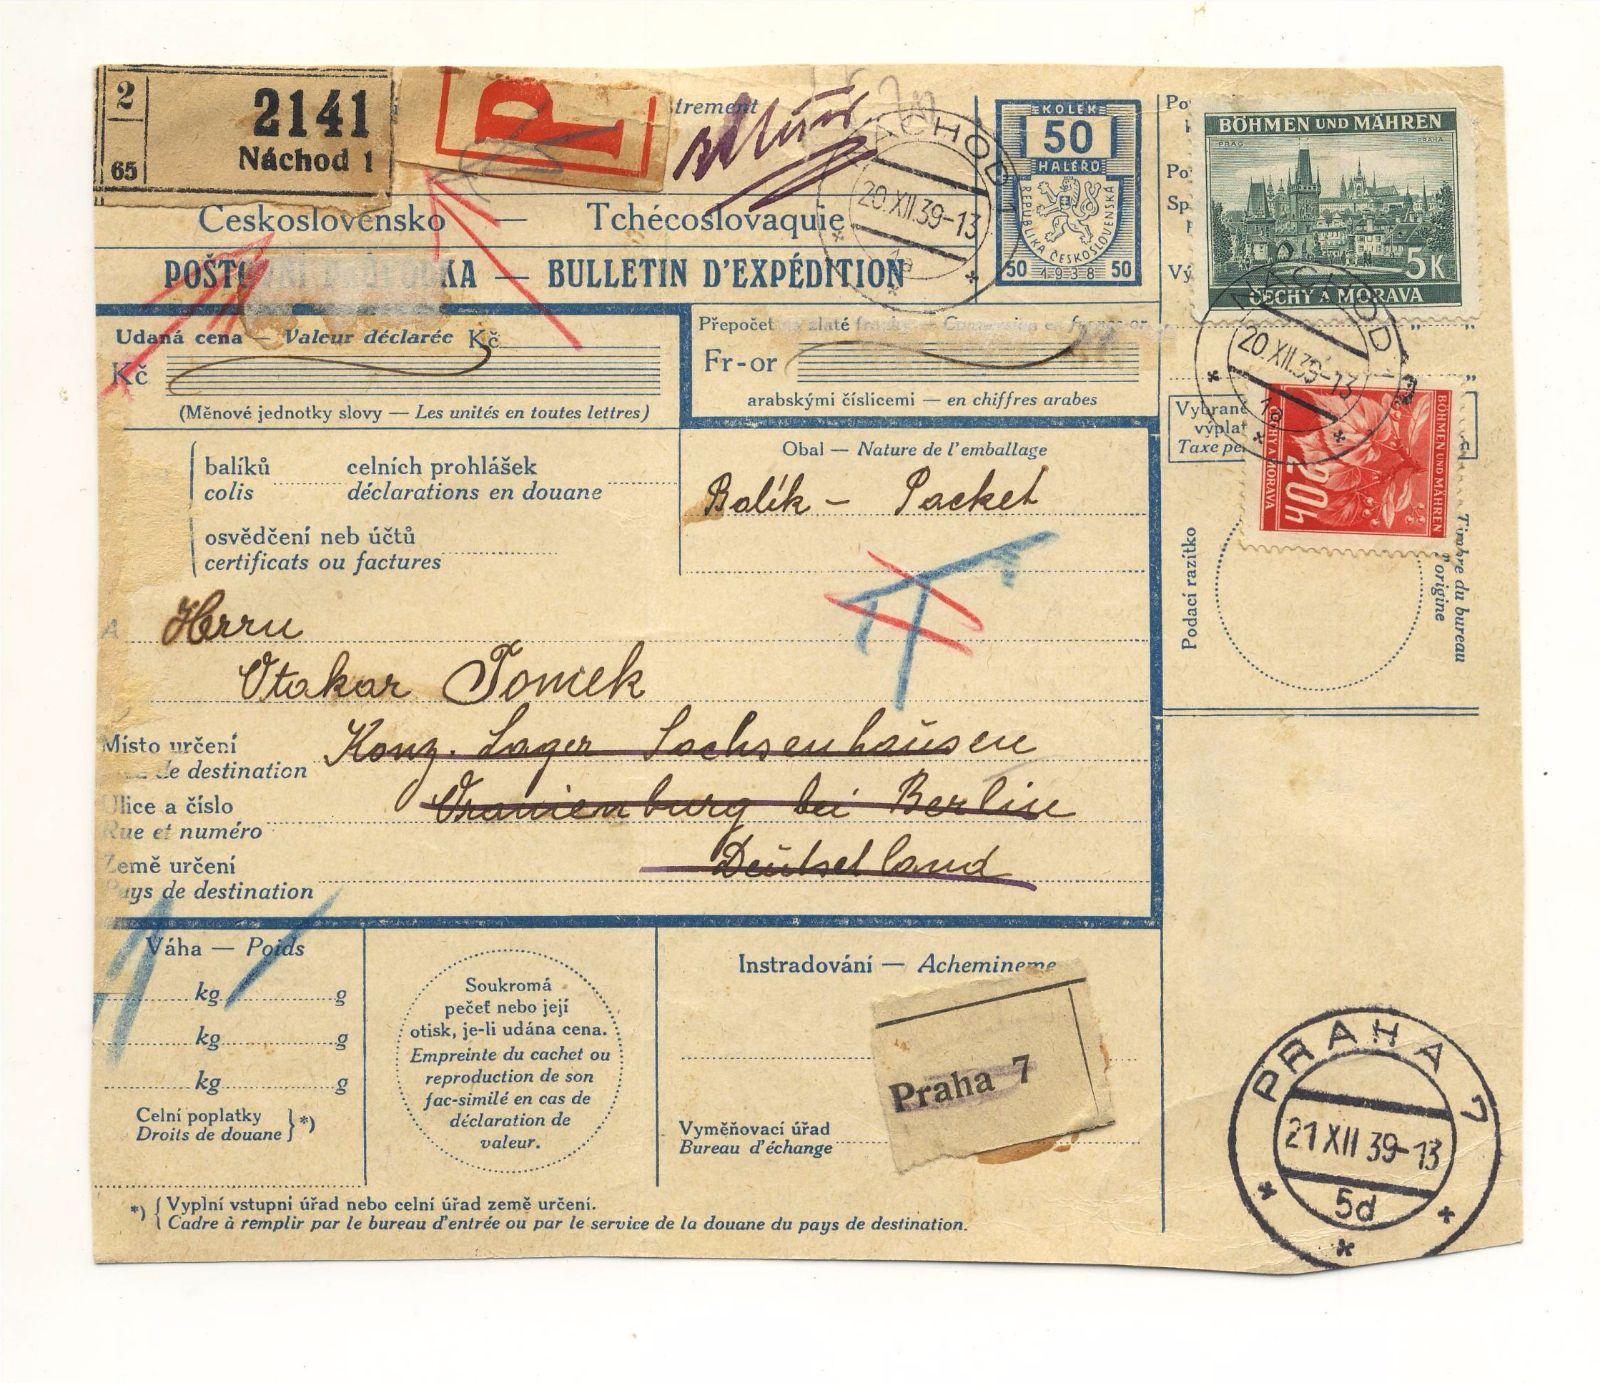 2
65
2141
Náchod 1
P
trement
NÁCHOD 1
20.XII.39-13
KOLEK
50
HALÉŘŮ
REPUBLIKA ČESKOSLOVENSKÁ
50 1938 50
Československo — Tchécoslovaquie
POŠTOVNÍ PRŮVODKA — BULLETIN D'EXPÉDITION
Po
Po
Sp
Vý
BÖHMEN UND MÄHREN
PRAG PRAHA
5K
ČECHY A MORAVA
NÁCHOD
20.XII.39-13
1a
Udaná cena — Valeur déclarée Kč
Kč
(Měnové jednotky slovy — Les unités en toutes lettres)
Přepočet na zlaté franky — Conversion en francs-or
Fr-or
arabskými číslicemi — en chiffres arabes
Vybrané
výplat
Taxe pe
BÖHMEN UND MÄHREN
20h
ČECHY A MORAVA
balíků celních prohlášek
colis déclarations en douane
osvědčení neb účtů
certificats ou factures
Obal — Nature de l'emballage
Balík — Packet
Podací razítko
Timbre du bureau
d'origine
A Herrn
Otakar Tomek
Místo určení Konz. Lager Sachsenhausen
de destination
Ulice a číslo Oranienburg bei Berlin
Rue et numéro
Země určení Deutschland
Pays de destination
Váha — Poids
kg g
kg g
kg g
Celní poplatky
Droits de douane } *)
Soukromá
pečeť nebo její
otisk, je-li udána cena.
Empreinte du cachet ou
reproduction de son
fac-similé en cas de
déclaration de
valeur.
Instradování — Achemineme
Praha 7
Vyměňovací úřad
Bureau d'échange
PRAHA 7
21 XII 39-13
5d
*) { Vyplní vstupní úřad nebo celní úřad země určení.
Cadre à remplir par le bureau d'entrée ou par le service de la douane du pays de destination.